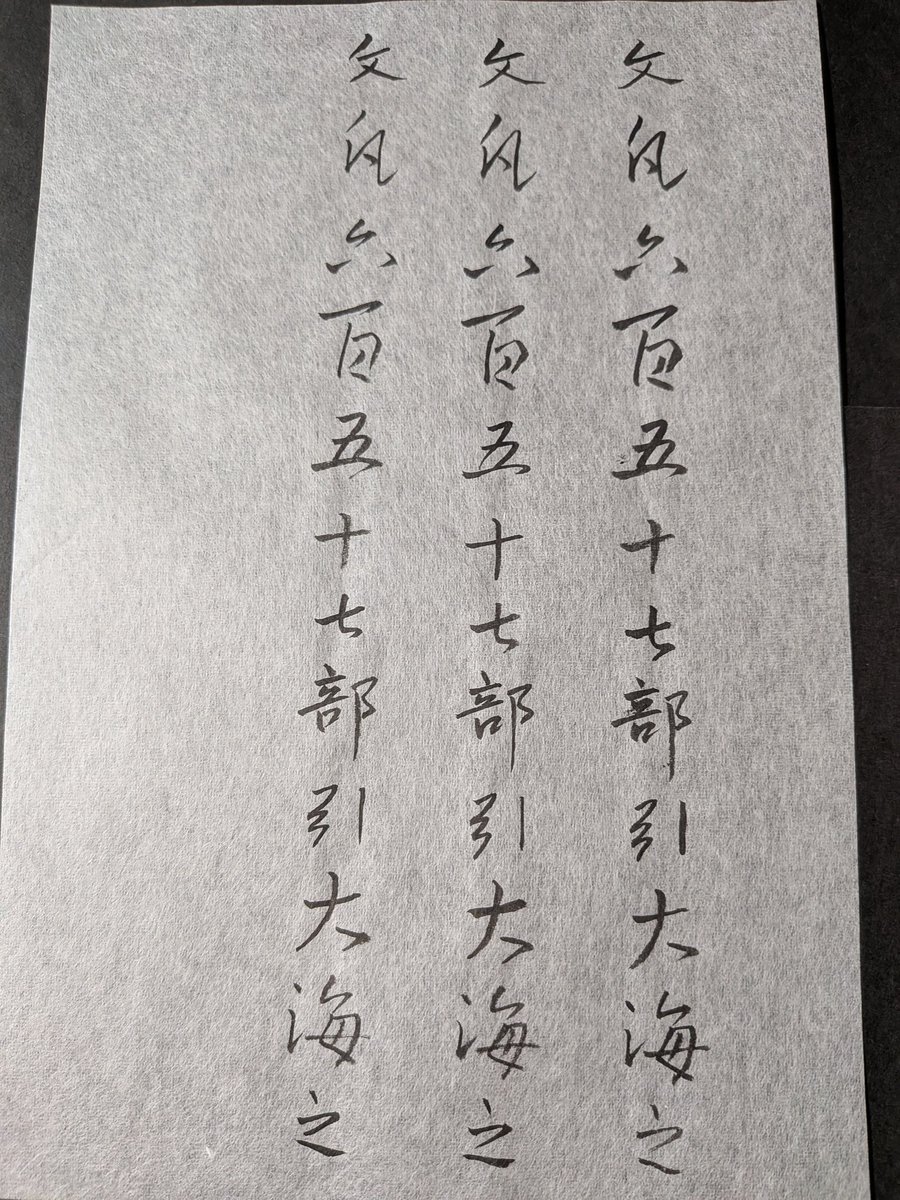 文凡六百五十七部引大海之
文凡六百五十七部引大海之
文凡六百五十七部引大海之